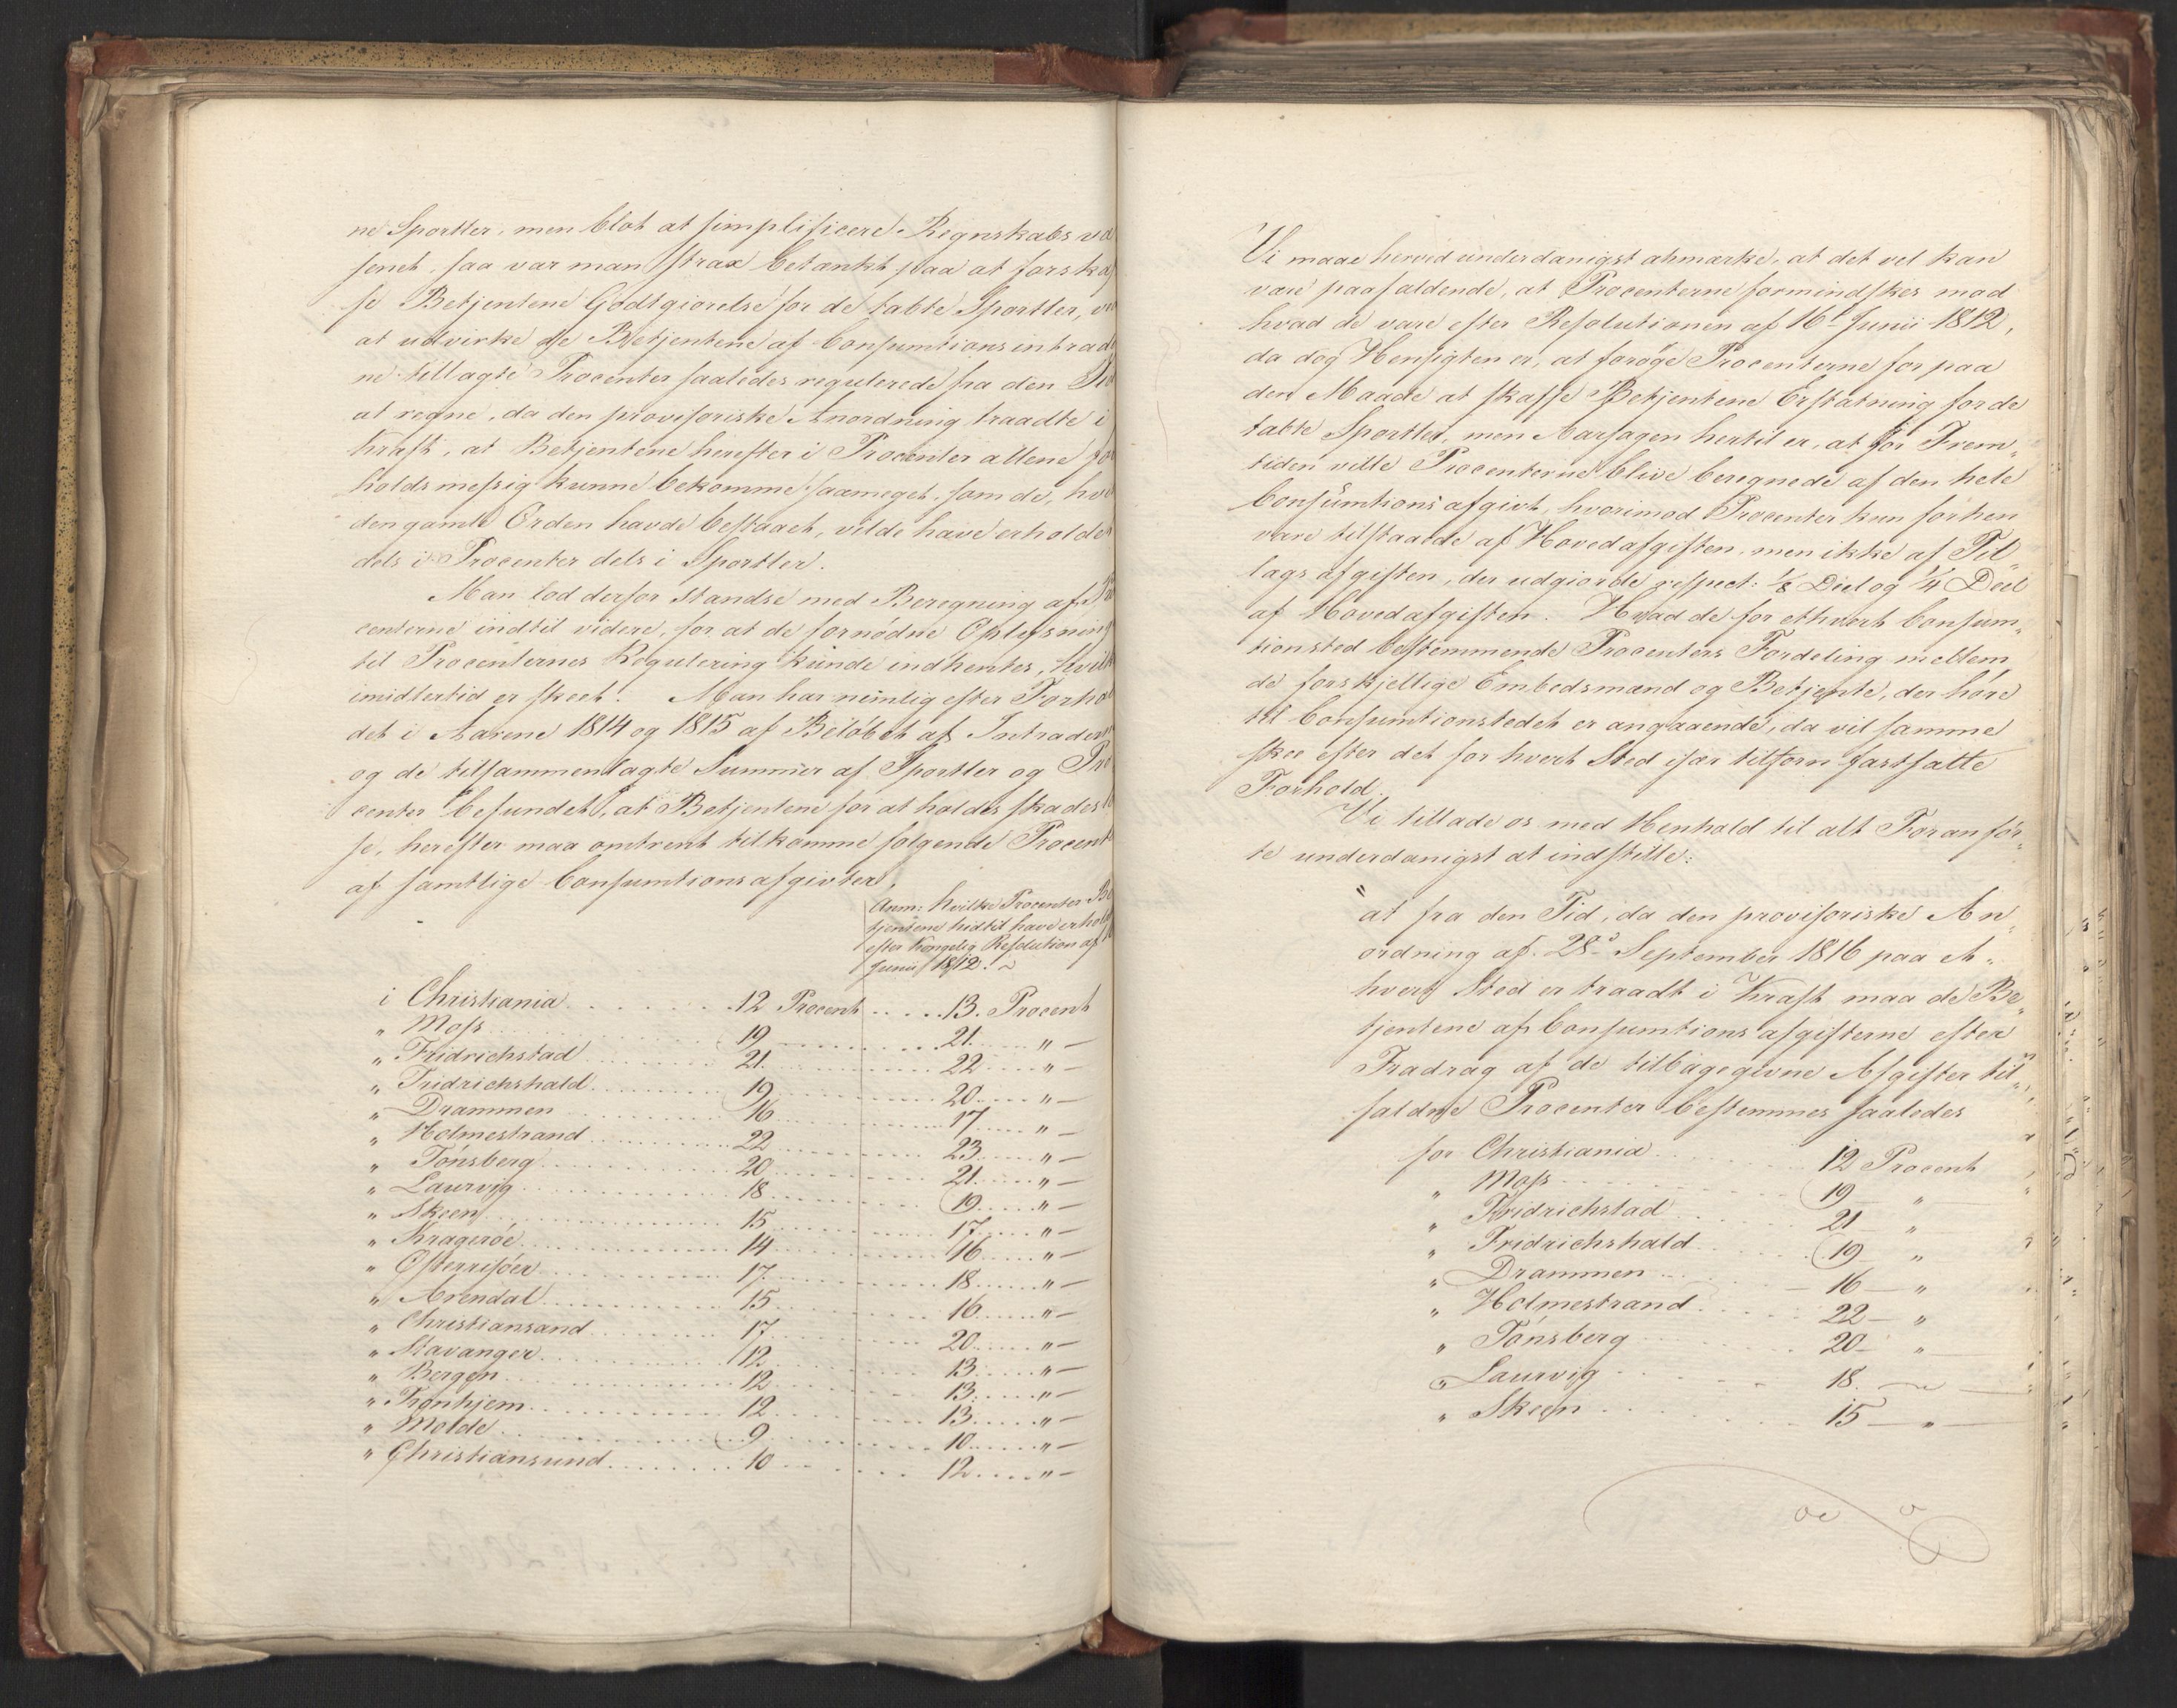 ne Sportler, men blot at simplificere Regnskabs væ
senet, saa var man strax betænkt paa at forskaf
fe Betjentene Godtgiørelse for de tabte Sportler, ve
at udvirke de Betjentene af Consumtions intrader
ne tillagte Procenter saaledes regulerede fra den Tid
at regne, da den provisoriske Anordning traadte i
Kraft, at Betjentene herefter i Procenter allene for
holdsmessig kunne bekomme saameget, som de, hvis
den gamle Orden havde bestaaet, vilde have erholdet
dels i Procenter dels i Sportler.
Man lod derfor standse med Beregning af Pro
centerne indtil videre, for at de fornødne Oplysning
til Procenternes Regulering kunde indhentes, hvilk
imidlertid er skeet. Man har nemlig efter Forhol
det i Aarene 1814 og 1815 af Beløbet af Intraderne
og de tilsammenlagte Summer af Sportler og Pro
center befundet, at Betjentene for at holdes skadeslø
se, herefter maa omtrent tilkomme følgende Procente
af samtlige Consumtionsafgivter.
Anm: hvilke Procenter Be
tjentene hidtil have erhol
efter Kongelig Resolution af 16
Junii 1812.
i Christiania 12 Procent 13. Procent
" Moss 19 21 " —
" Fridrichstad 21 22 " —
" Fridrichshald 19 20 " —
" Drammen 16 17 " —
" Holmestrand 22 23 " —
" Tönsberg 20 21 " —
" Laurvig 18 19 " —
" Skeen 15 17 " —
" Kragerøe 14 16 " —
" Østerrisøer 17 18 " —
" Arendal 15 16 " —
" Christiansand 17 20 " —
" Stavanger 12 13 " —
" Bergen 12 13 " —
" Tronhjem 12 13 " —
" Molde 9 10 " —
" Christiansund 10 12 " —
Vi maae herved underdanigst anmærke, at det vel kan
være paafaldende, at Procenterne formindskes mod
hvad de vare efter Resolutionen af 16de Junii 1812,
da dog Hensigten er, at forøge Procenterne for paa
den Maade at skaffe Betjentene Erstatning for de
tabte Sportler, men Aarsagen hertil er, at for Frem„
tiden ville Procenterne blive beregnede af den hele
Consumtionsafgivt, hvorimod Procenter kun forhen
vare tilstaaede af Hovedafgiften, men ikke af Til„
lagsafgiften, der udgiorde respect: 1/8 Deel og 1/4 Deel
af Hovedafgiften. Hvad de for ethvert Consum„
tionsted bestemmende Procenters Fordeling mellem
de forskjellige Embedsmænd og Betjente, der høre
til Consumtionstedet er angaaende, da vil samme
skee efter det for hvert Sted især tilforn fastsatte
Forhold.
Vi tillade os med Henhold til alt Foranfør„
te underdanigst at indstille:
"at fra den Tid, da den provisoriske An„
ordning af 28de September 1816 paa et„
hvert Sted er traadt i Kraft maa de Be„
tjentene af Consumtionsafgifterne efter
Fradrag af de tilbagegivne Afgifter til„
faldne Procenter bestemmes saaledes
for Christiania 12 Procent
" Moss 19 — "
" Fridrichstad 21 — "
" Fridrichshald 19 — "
" Drammen 16 — "
" Holmestrand 22 — "
" Tönsberg 20 — "
" Laurvig 18. —
" Skeen 15 — " —